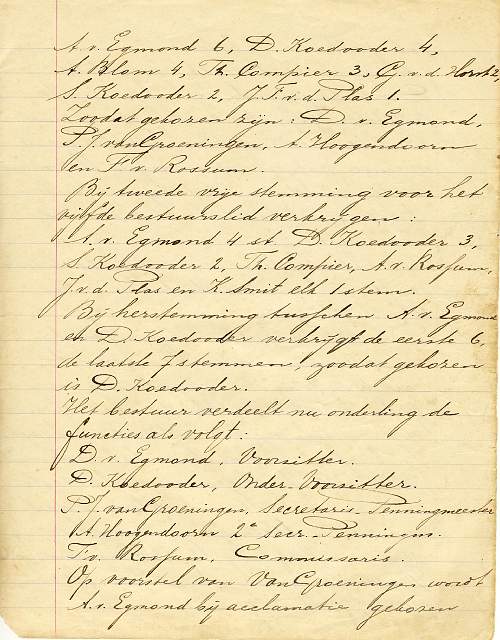 A. v. Egmond 6, D. Koedooder 4,
A. Blom 4, Th. Compier 3, G. v. d. Horst 2,
S. Koedooder 2, J. F. v. d. Plas 1.
Zoodat gekozen zijn: D. v. Egmond,
P. J. van Groeningen, A. Hoogendoorn
en F. v. Rossum.
Bij tweede vrije stemming voor het
vijfde bestuurslid verkrijgen:
A. v. Egmond 4 st. D. Koedooder 3,
S. Koedooder 2, Th. Compier, A. v. Rossum,
J. v. d. Plas en K. Smit elk 1 stem.
Bij herstemming tusschen A. v. Egmond
en D. Koedooder verkrijgt de eerste 6,
de laatste 7 stemmen, zoodat gekozen
is D. Koedooder.
Het bestuur verdeelt nu onderling de
functies als volgt:
D. v. Egmond, Voorsitter.
D. Koedooder, Onder-Voorsitter.
P. J. van Groeningen, Secretaris-Penningmeester
A. Hoogendoorn 2e Secr.-Penningm.
F. v. Rossum, Commissaris.
Op voorstel van Van Groeningen wordt
A. v. Egmond bij acclamatie gekozen